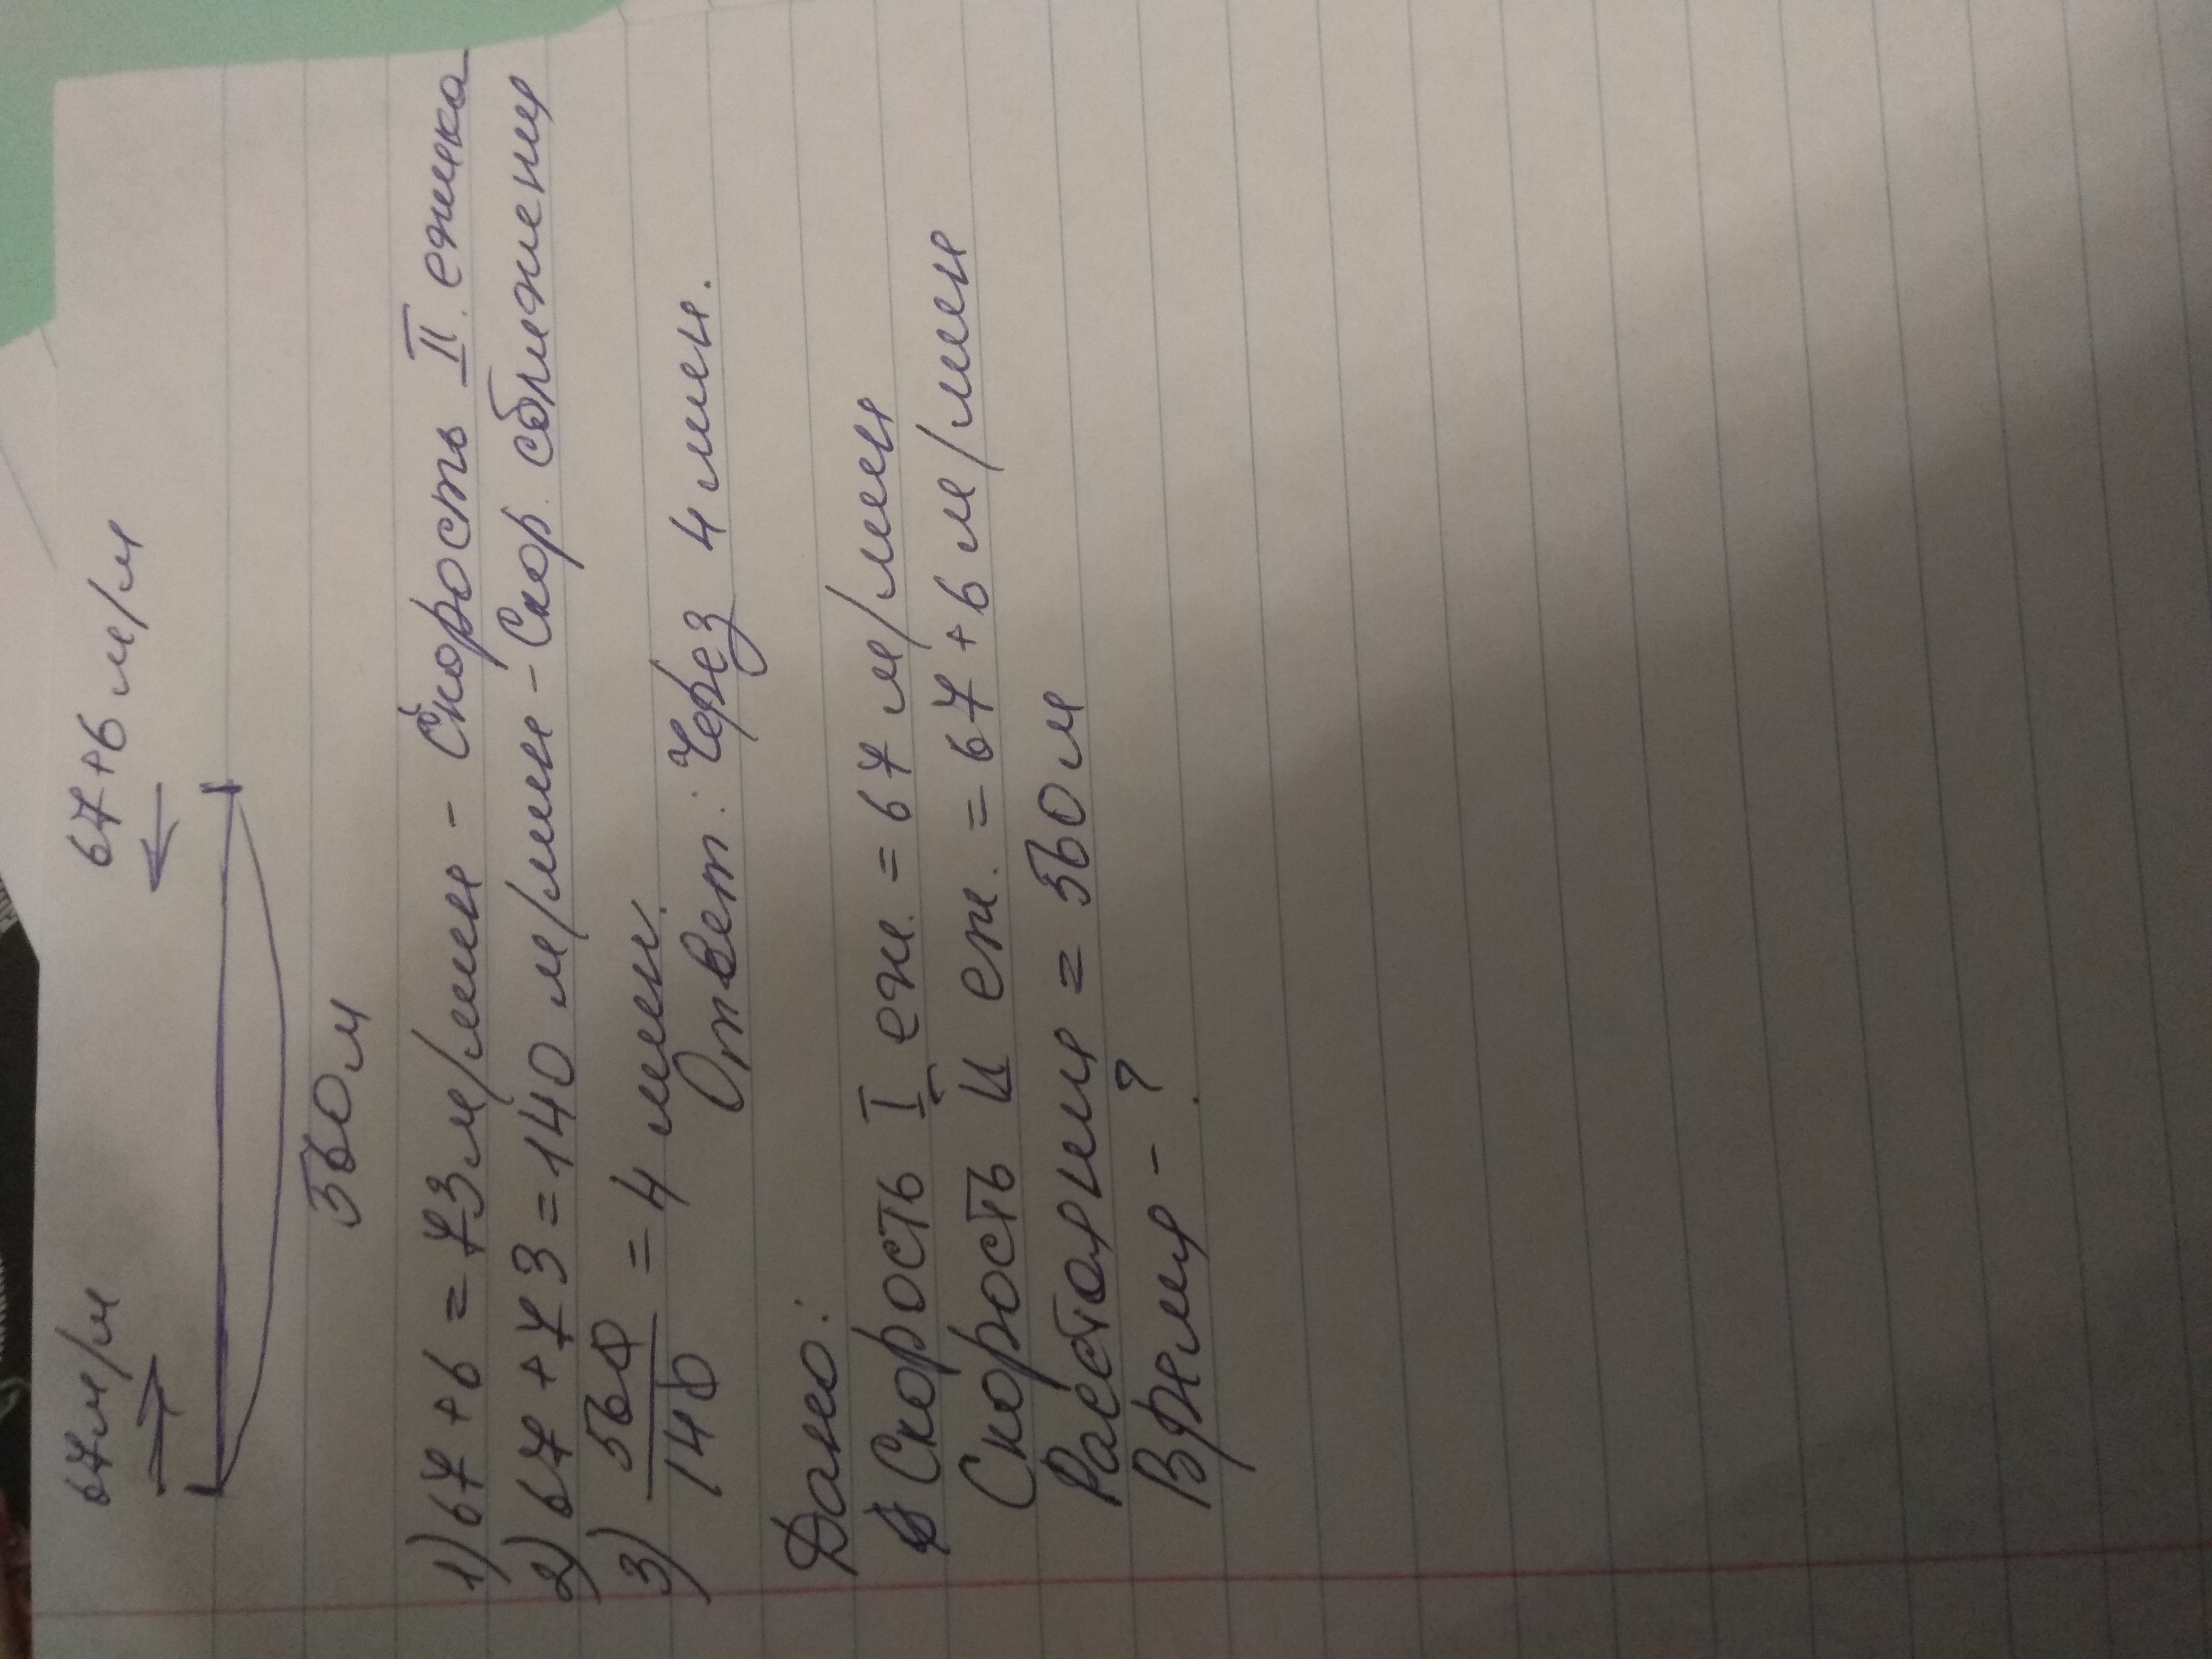 67м/м 67+6 м/м
560м
1) 67+6 = 73м/мин - Скорость II ежика
2) 67+73 = 140 м/мин - Скор. сближения
3) 560/140 = 4 мин.
Ответ: Через 4 мин.
Дано:
Скорость I еж. = 67 м/мин
Скорость II еж. = 67+6 м/мин
Растояния = 560м
Время - ?